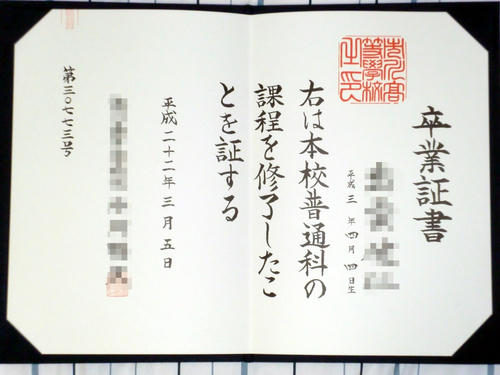 卒業証書
平成三年四月四日生
右は本校普通科の
課程を修了したこ
とを証する
平成二十二年三月五日
第三〇七七三号